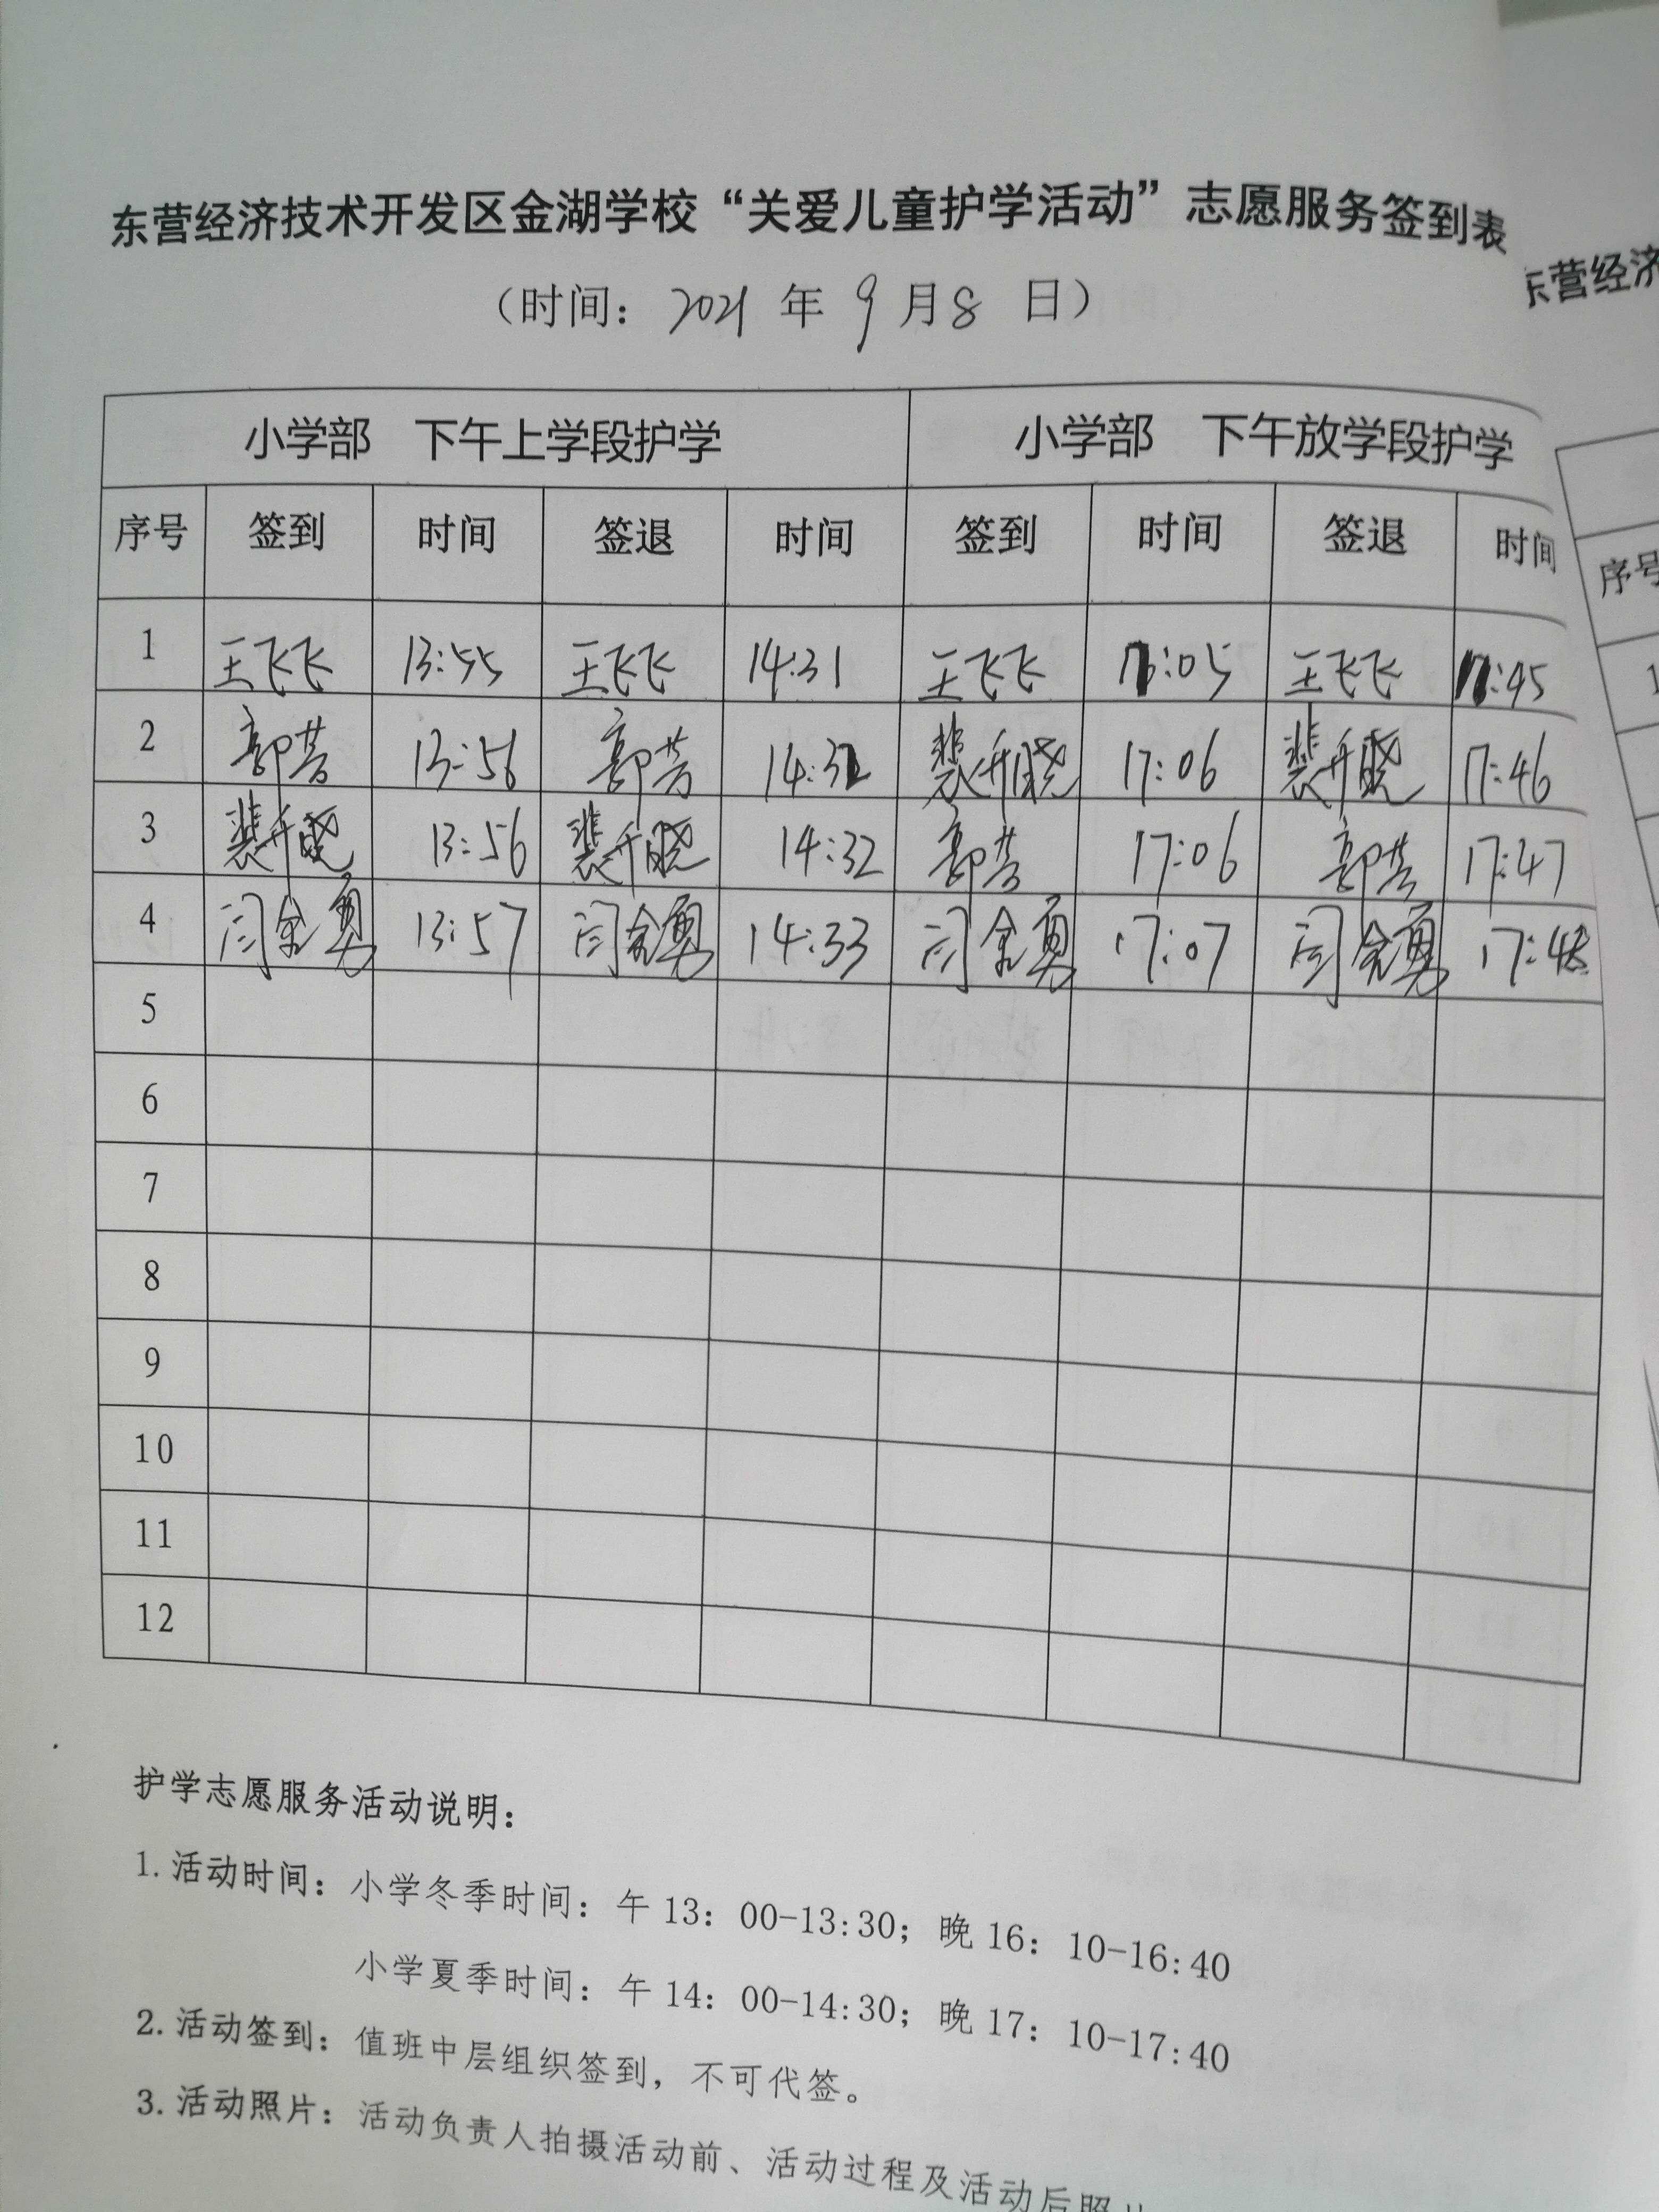 东营经济技术开发区金湖学校“关爱儿童护学活动”志愿服务签到表
（时间：2021 年 9 月 8 日）
小学部 下午上学段护学 小学部 下午放学段护学
序号 签到 时间 签退 时间 签到 时间 签退 时间
1 王飞飞 13:55 王飞飞 14:31 王飞飞 17:05 王飞飞 17:45
2 郭芳 13:56 郭芳 14:32 裴升晓 17:06 裴升晓 17:46
3 裴升晓 13:56 裴升晓 14:32 郭芳 17:06 郭芳 17:47
4 闫金勇 13:57 闫金勇 14:33 闫金勇 17:07 闫金勇 17:48
5
6
7
8
9
10
11
12
护学志愿服务活动说明：
1. 活动时间：小学冬季时间：午 13：00-13:30；晚 16：10-16:40
小学夏季时间：午 14：00-14:30；晚 17：10-17:40
2. 活动签到：值班中层组织签到，不可代签。
3. 活动照片：活动负责人拍摄活动前、活动过程及活动后照片
东营经济
序号
1